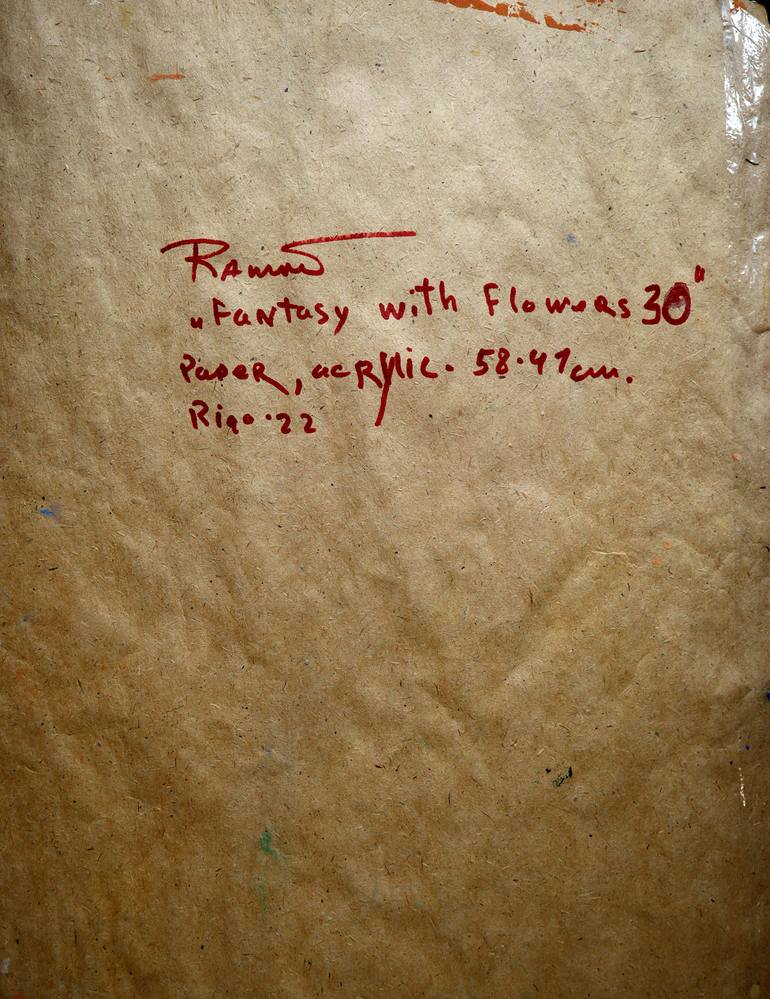 Ramons
„Fantasy with Flowers 30"
Paper, acrylic. 58.41cm.
Riga.22